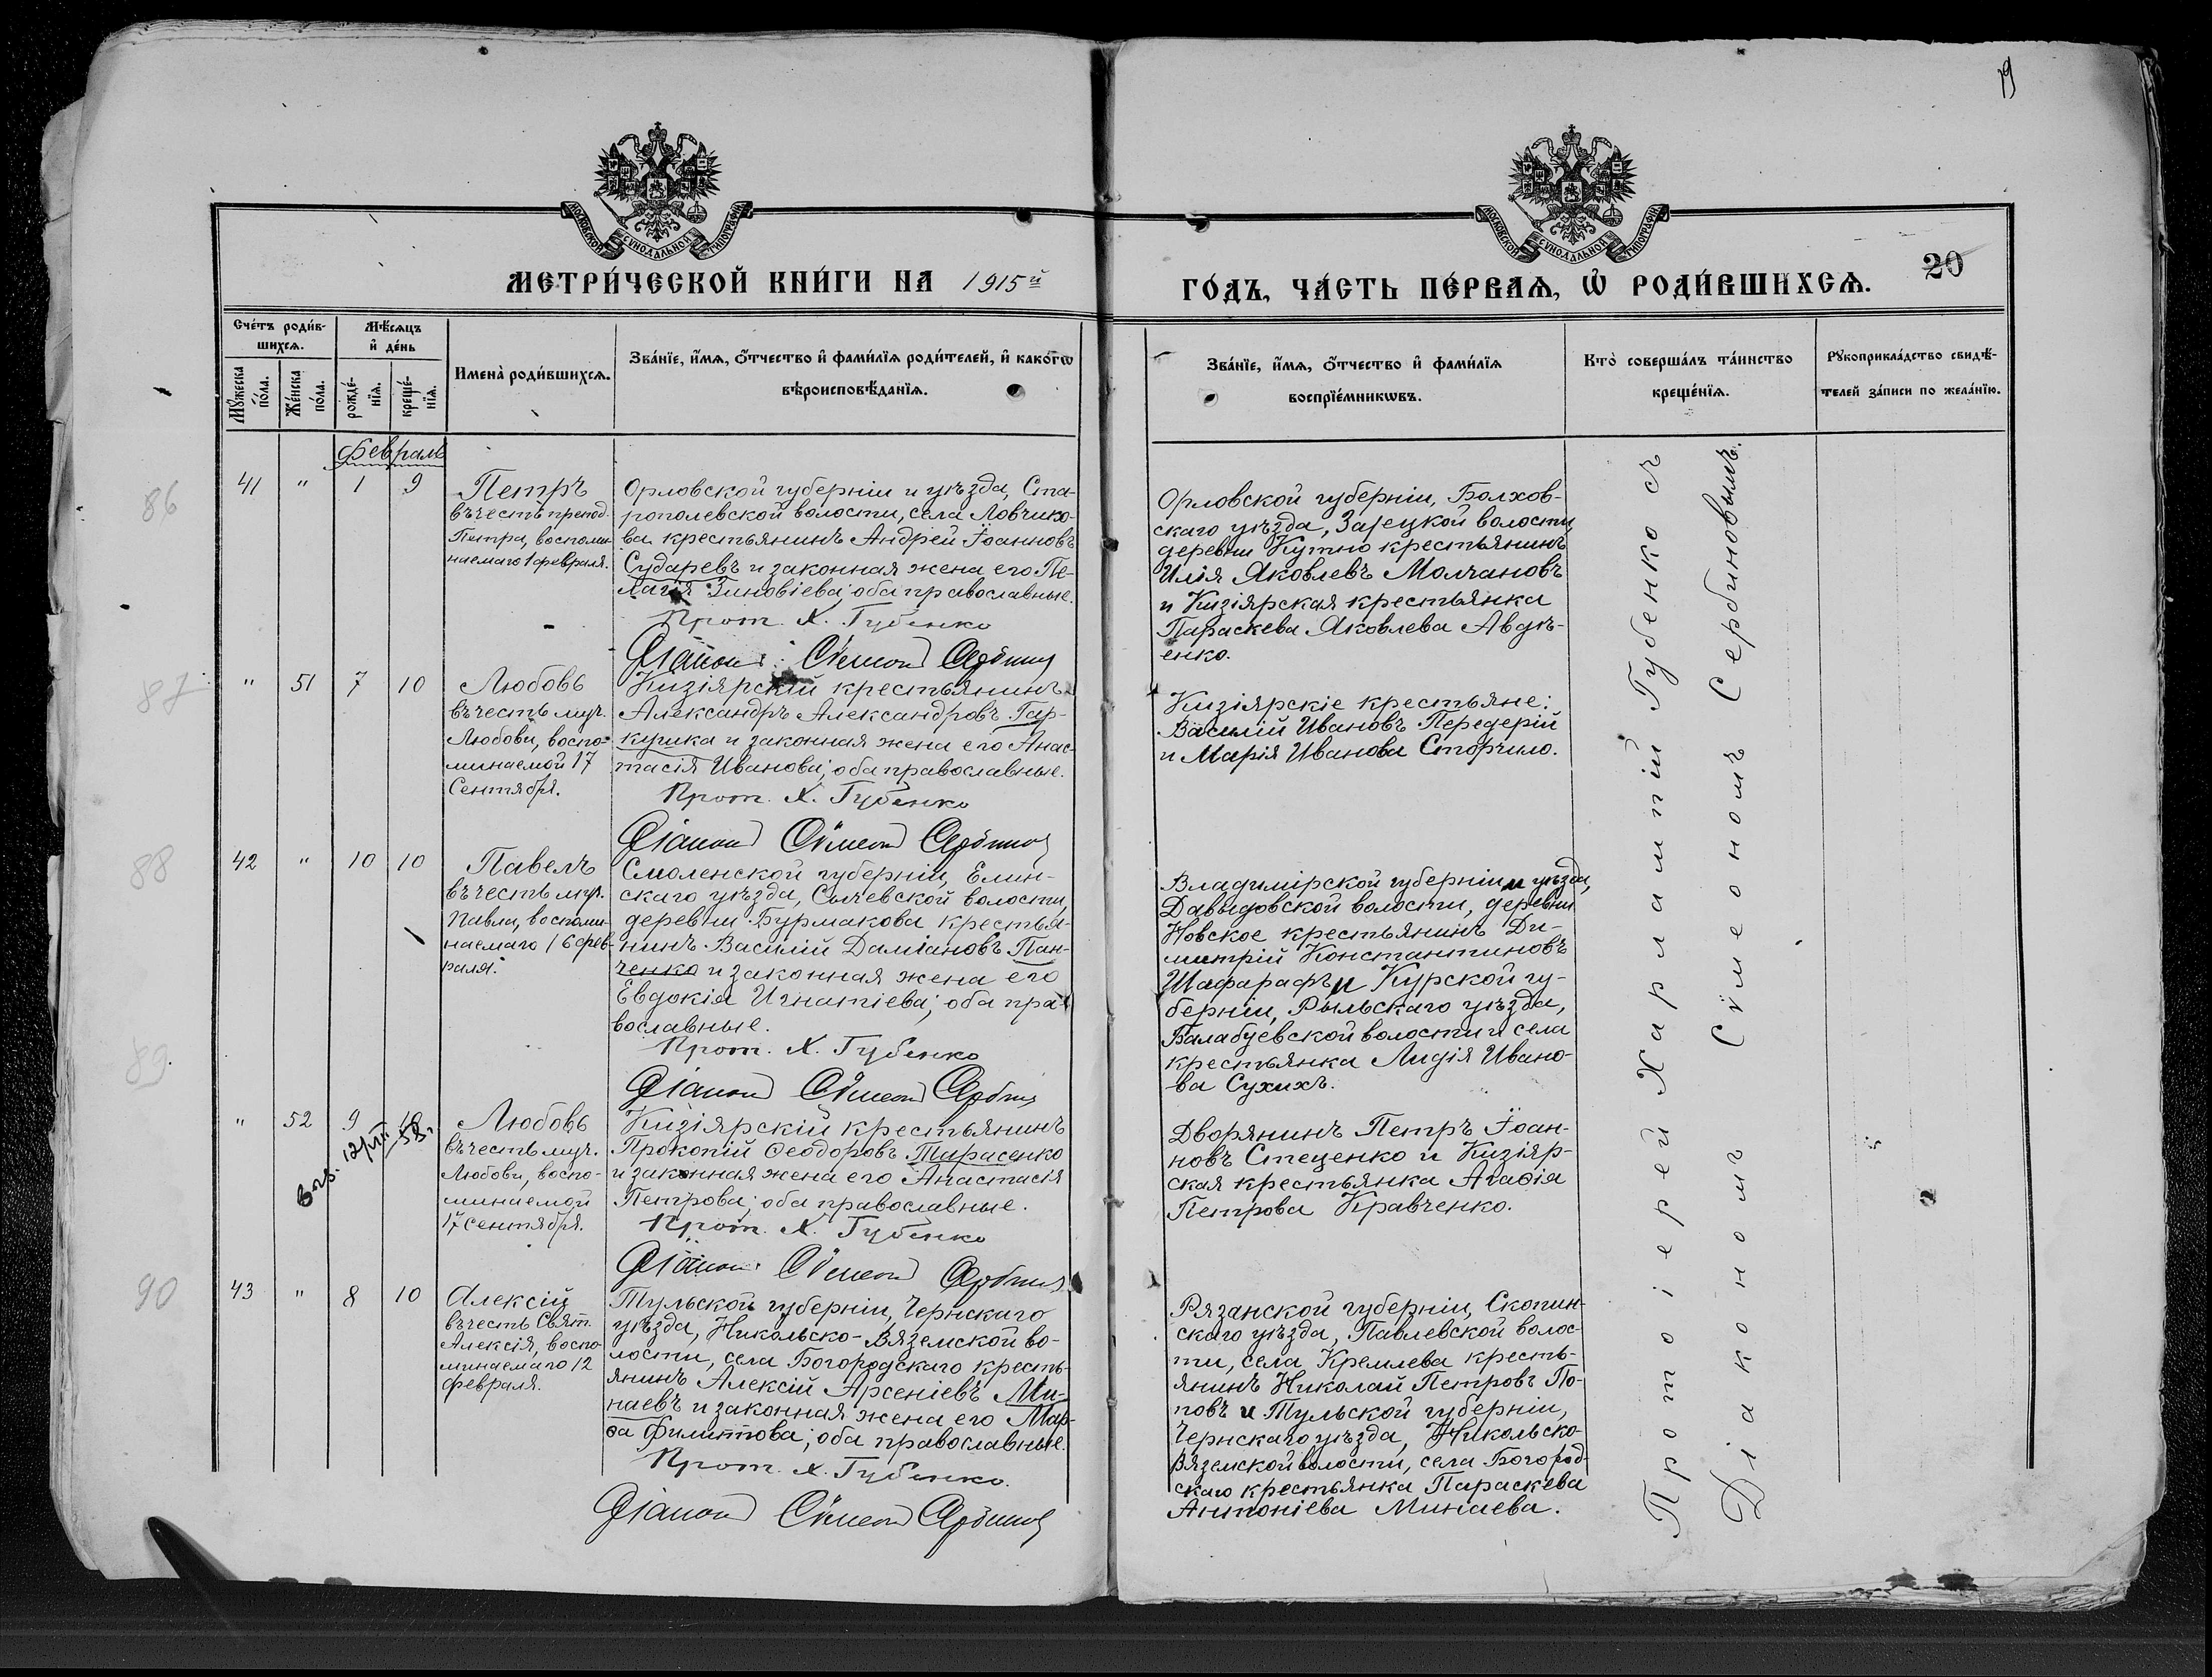 19
МОСКОВСКОЙ СѴНОДАЛЬНОЙ ТИПОГРАФІИ
МОСКОВСКОЙ СѴНОДАЛЬНОЙ ТИПОГРАФІИ
МЕТРИ́ЧЕСКОЙ КНИ́ГИ НА 1915й
ГО́ДЪ, ЧА́СТЬ ПЕ́РВАѦ, Ѿ РОДИ́ВШИХСѦ.
20
Сче́тъ роди́в-
шихсѧ.
Мꙋ́жеска
по́ла.
Же́нска
по́ла.
Мѣ́сѧцъ
и҆ де́нь
рожде́-
нїѧ.
креще́-
нїѧ.
Имена̀ роди́вшихсѧ.
Зва́нїе, и҆́мѧ, ѻ҆́тчество и҆ фами́лїѧ роди́телей, и҆ како́гѡ
вѣроисповѣ́данїѧ.
Зва́нїе, и҆́мѧ, ѻ҆́тчество и҆ фами́лїѧ
воспрїе́мникѡвъ.
Кто̀ соверша́лъ та́инство
креще́нїѧ.
Рꙋкоприкла́дство свидѣ́-
телей за́писи по жела́нїю.
Февраль
86
41 " 1 9
Петръ
въ честь препод.
Петра, воспоми-
наемаго 1 февраля.
Орловской губерніи и уѣзда, Ста-
рополевской волости, села Ловчико-
ва крестьянинъ Андрей Іоанновъ
Сударевъ и законная жена его Пе-
лагія Зиновіева; оба православные.
Прот. Х. Губенко
Діаконъ Сѵмеонъ Сербинов
Орловской губерніи, Болхов-
скаго уѣзда, Зарецкой волости,
деревни Кутно крестьянинъ
Илія Яковлевъ Молчановъ
и Кизіярская крестьянка
Параскева Яковлева Авдѣ-
енко.
87
" 51 7 10
Любовь
въ честь муч.
Любови, воспо-
минаемой 17
Сентября.
Кизіярскій крестьянинъ
Александръ Александровъ Гар-
куша и законная жена его Анас-
тасія Иванова; оба православные.
Прот. Х. Губенко
Діаконъ Сѵмеонъ Сербинов
Кизіярскіе крестьяне:
Василій Ивановъ Передерій
и Марія Иванова Сторчило.
88
42 " 10 10
Павелъ
въ честь муч.
Павла, воспоми-
наемаго 16 фев-
раля.
Смоленской губерніи, Елин-
скаго уѣзда, волости,
деревни Бурмакова крестья-
нинъ Василій Даміановъ Пан-
ченко и законная жена его
Евдокія Игнатіева; оба пра-
вославные.
Прот. Х. Губенко
Діаконъ Сѵмеонъ Сербинов
Владимірской губерніи и уѣзда,
Давыдовской волости, деревни
Новское крестьянинъ Ди-
митрій Константиновъ
Шафарафъ и Курской гу-
берніи, Рыльскаго уѣзда,
Балабуевской волости и села
крестьянка Лидія Ивано-
ва Сухихъ.
89.
" 52 9 10
12/VII 58г.
Любовь
въ честь муч.
Любови, воспо-
минаемой
17 сентября.
Кизіярскій крестьянинъ
Прокопій Ѳеодоровъ Тарасенко
и законная жена его Анастасія
Петрова; оба православные.
Прот. Х. Губенко
Діаконъ Сѵмеонъ Сербинов
Дворянинъ Петръ Іоан-
новъ Стеценко и Кизіяр-
ская крестьянка Агаѳія
Петрова Кравченко.
90
43 " 8 10
Алексій
въ честь Свят.
Алексія, воспо-
минаемаго 12
февраля.
Тульской губерніи, Чернскаго
уѣзда, Никольско-Вяземской во-
лости, села Богородскаго кресть-
янинъ Алексій Арсеніевъ Ми-
наевъ и законная жена его Мар-
ѳа Филиппова; оба православные.
Прот. Х. Губенко.
Діаконъ Сѵмеонъ Сербинов
Рязанской губерніи, Скопин-
скаго уѣзда, Павлевской волос-
ти, села Кремлева кресть-
янинъ Николай Петровъ По-
повъ и Тульской губерніи,
Чернскаго уѣзда, Никольско-
Вяземской волости, села Богород-
скаго крестьянка Параскева
Антоніева Минаева.
Протоіерей Харлампій Губенко съ
Діакономъ Сѵмеономъ Сербиновымъ.